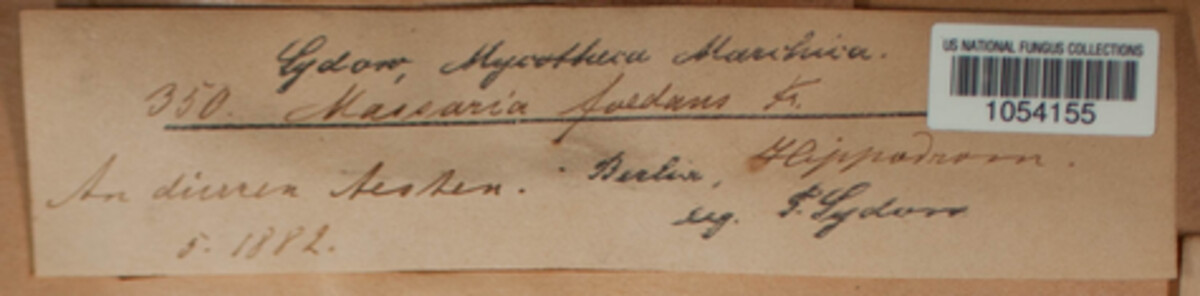 Sydow, Mycotheca Marchica.
350. Massaria foedans Fr.
US NATIONAL FUNGUS COLLECTIONS
1054155
An dürren Aesten. Berlin, Hippodrom.
5. 1882.
leg. P. Sydow